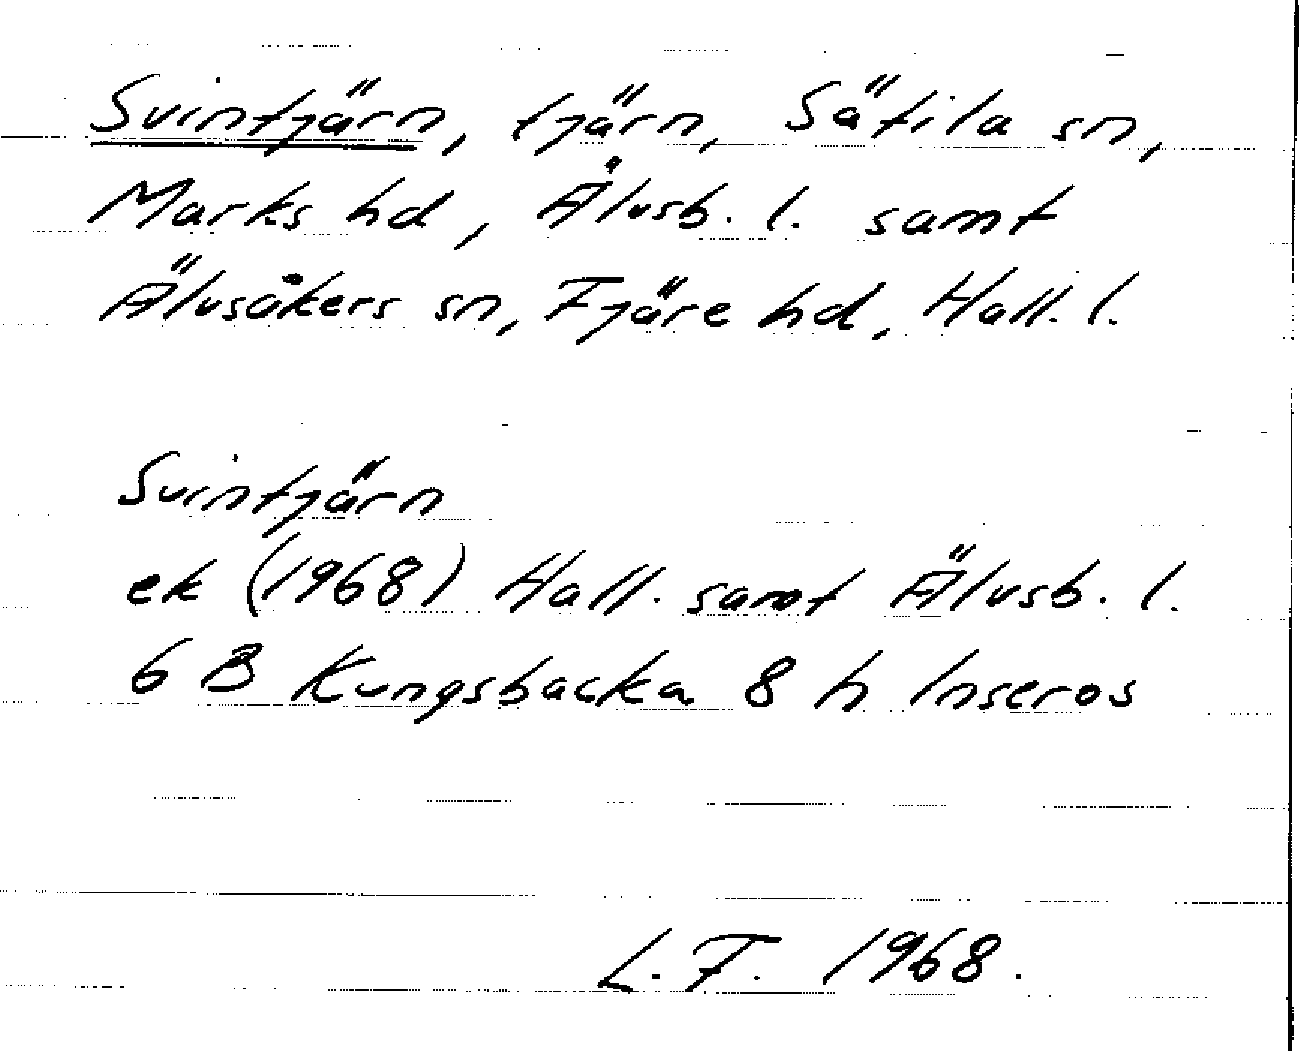 Svintjärn, tjärn, Sätila sn,
Marks hd, Älvsb. l. samt
Älvsåkers sn, Fjäre hd, Hall. l.
Svintjärn
ek (1968) Hall. samt Älvsb. l.
6 B Kungsbacka 8 h Inseros
L. F. 1968.